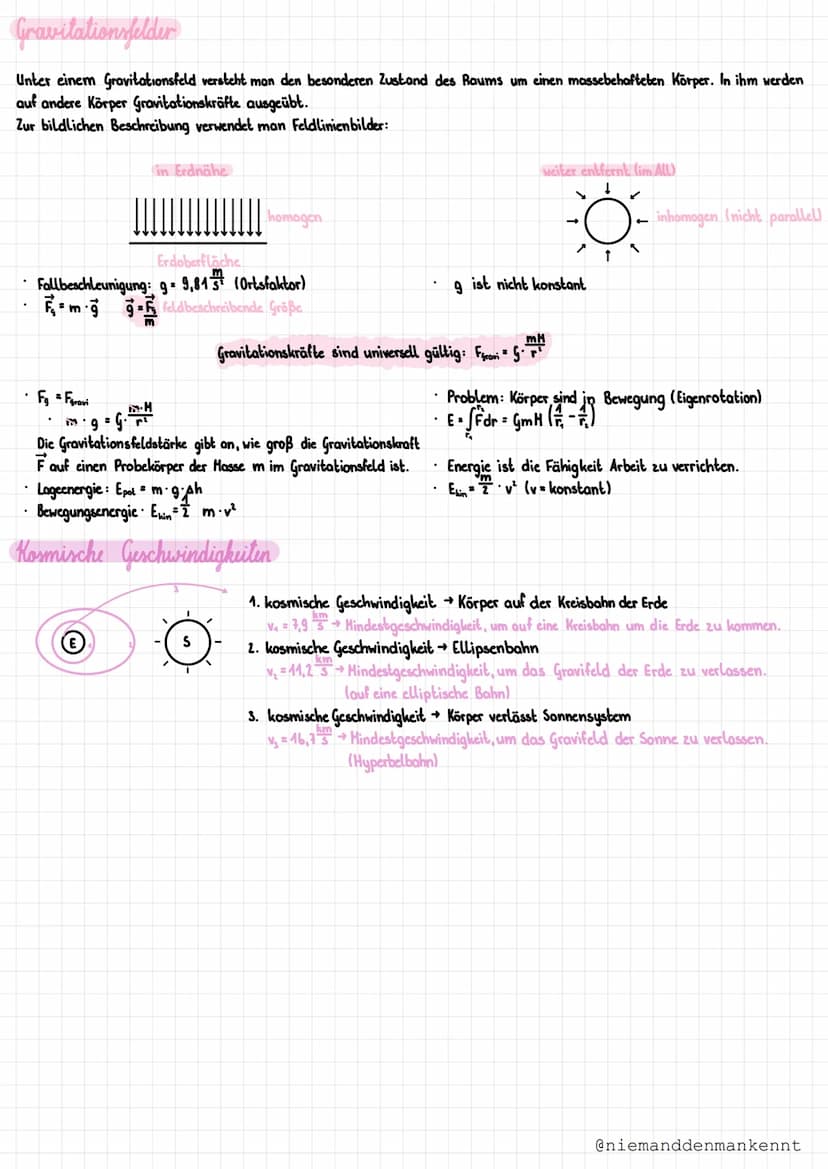 Gravitationsfelder
Unter einem Gravitationsfeld versteht man den besonderen Zustand des Raums um einen massebehafteten Körper. In ihm werden
auf andere Körper Gravitationskräfte ausgeübt.
Zur bildlichen Beschreibung verwendet man Feldlinienbilder:
in Erdnähe
homogen
Erdoberfläche
weiter entfernt (im All)
inhomogen (nicht parallel)
· Fallbeschleunigung: g = 9,81 m/s² (Ortsfaktor)
· g ist nicht konstant
· F⃗g = m · g⃗ g⃗ = F⃗g/m feldbeschreibende Größe
Gravitationskräfte sind universell gültig: Fgravi = G · mM/r²
· Fg = Fgravi
· m · g = G · m·M/r²
Die Gravitationsfeldstärke gibt an, wie groß die Gravitationskraft
F⃗ auf einen Probekörper der Masse m im Gravitationsfeld ist.
· Lageenergie: Epot = m · g · Δh
· Bewegungsenergie · Ekin = 1/2 m · v²
· Problem: Körper sind in Bewegung (Eigenrotation)
· E = ∫F⃗dr = GmM (1/r₁ - 1/r₂)
· Energie ist die Fähigkeit Arbeit zu verrichten.
· Ekin = m/2 · v² (v = konstant)
Kosmische Geschwindigkeiten
E
1
2
3
S
1. kosmische Geschwindigkeit → Körper auf der Kreisbahn der Erde
v₁ = 7,9 km/s → Mindestgeschwindigkeit, um auf eine Kreisbahn um die Erde zu kommen.
2. kosmische Geschwindigkeit → Ellipsenbahn
v₂ = 11,2 km/s → Mindestgeschwindigkeit, um das Gravifeld der Erde zu verlassen.
(auf eine elliptische Bahn)
3. kosmische Geschwindigkeit → Körper verlässt Sonnensystem
v₃ = 16,7 km/s → Mindestgeschwindigkeit, um das Gravifeld der Sonne zu verlassen.
(Hyperbelbahn)
@niemanddenmankennt